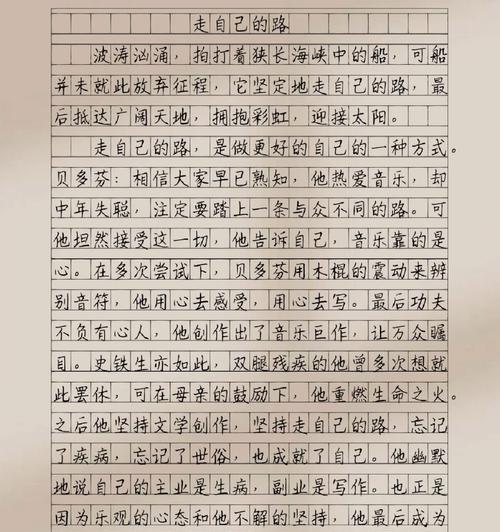 走自己的路
波涛汹涌，拍打着狭长海峡中的船，可船
并未就此放弃征程，它坚定地走自己的路，最
后抵达广阔天地，拥抱彩虹，迎接太阳。
走自己的路，是做更好的自己的一种方式。
贝多芬：相信大家早已熟知，他热爱音乐，却
中年失聪，注定要踏上一条与众不同的路。可
他坦然接受这一切，他告诉自己，音乐靠的是
心。在多次尝试下，贝多芬用木棍的震动来辨
别音符，他用心去感受，用心去写。最后功夫
不负有心人，他创作出了音乐巨作，让万众瞩
目。史铁生亦如此，双腿残疾的他曾多次想就
此罢休，可在母亲的鼓励下，他重燃生命之火。
之后他坚持文学创作，坚持走自己的路，忘记
了疾病，忘记了世俗，也成就了自己。他幽默
地说自己的主业是生病，副业是写作。也正是
因为乐观的心态和他不解的坚持，他最后成为